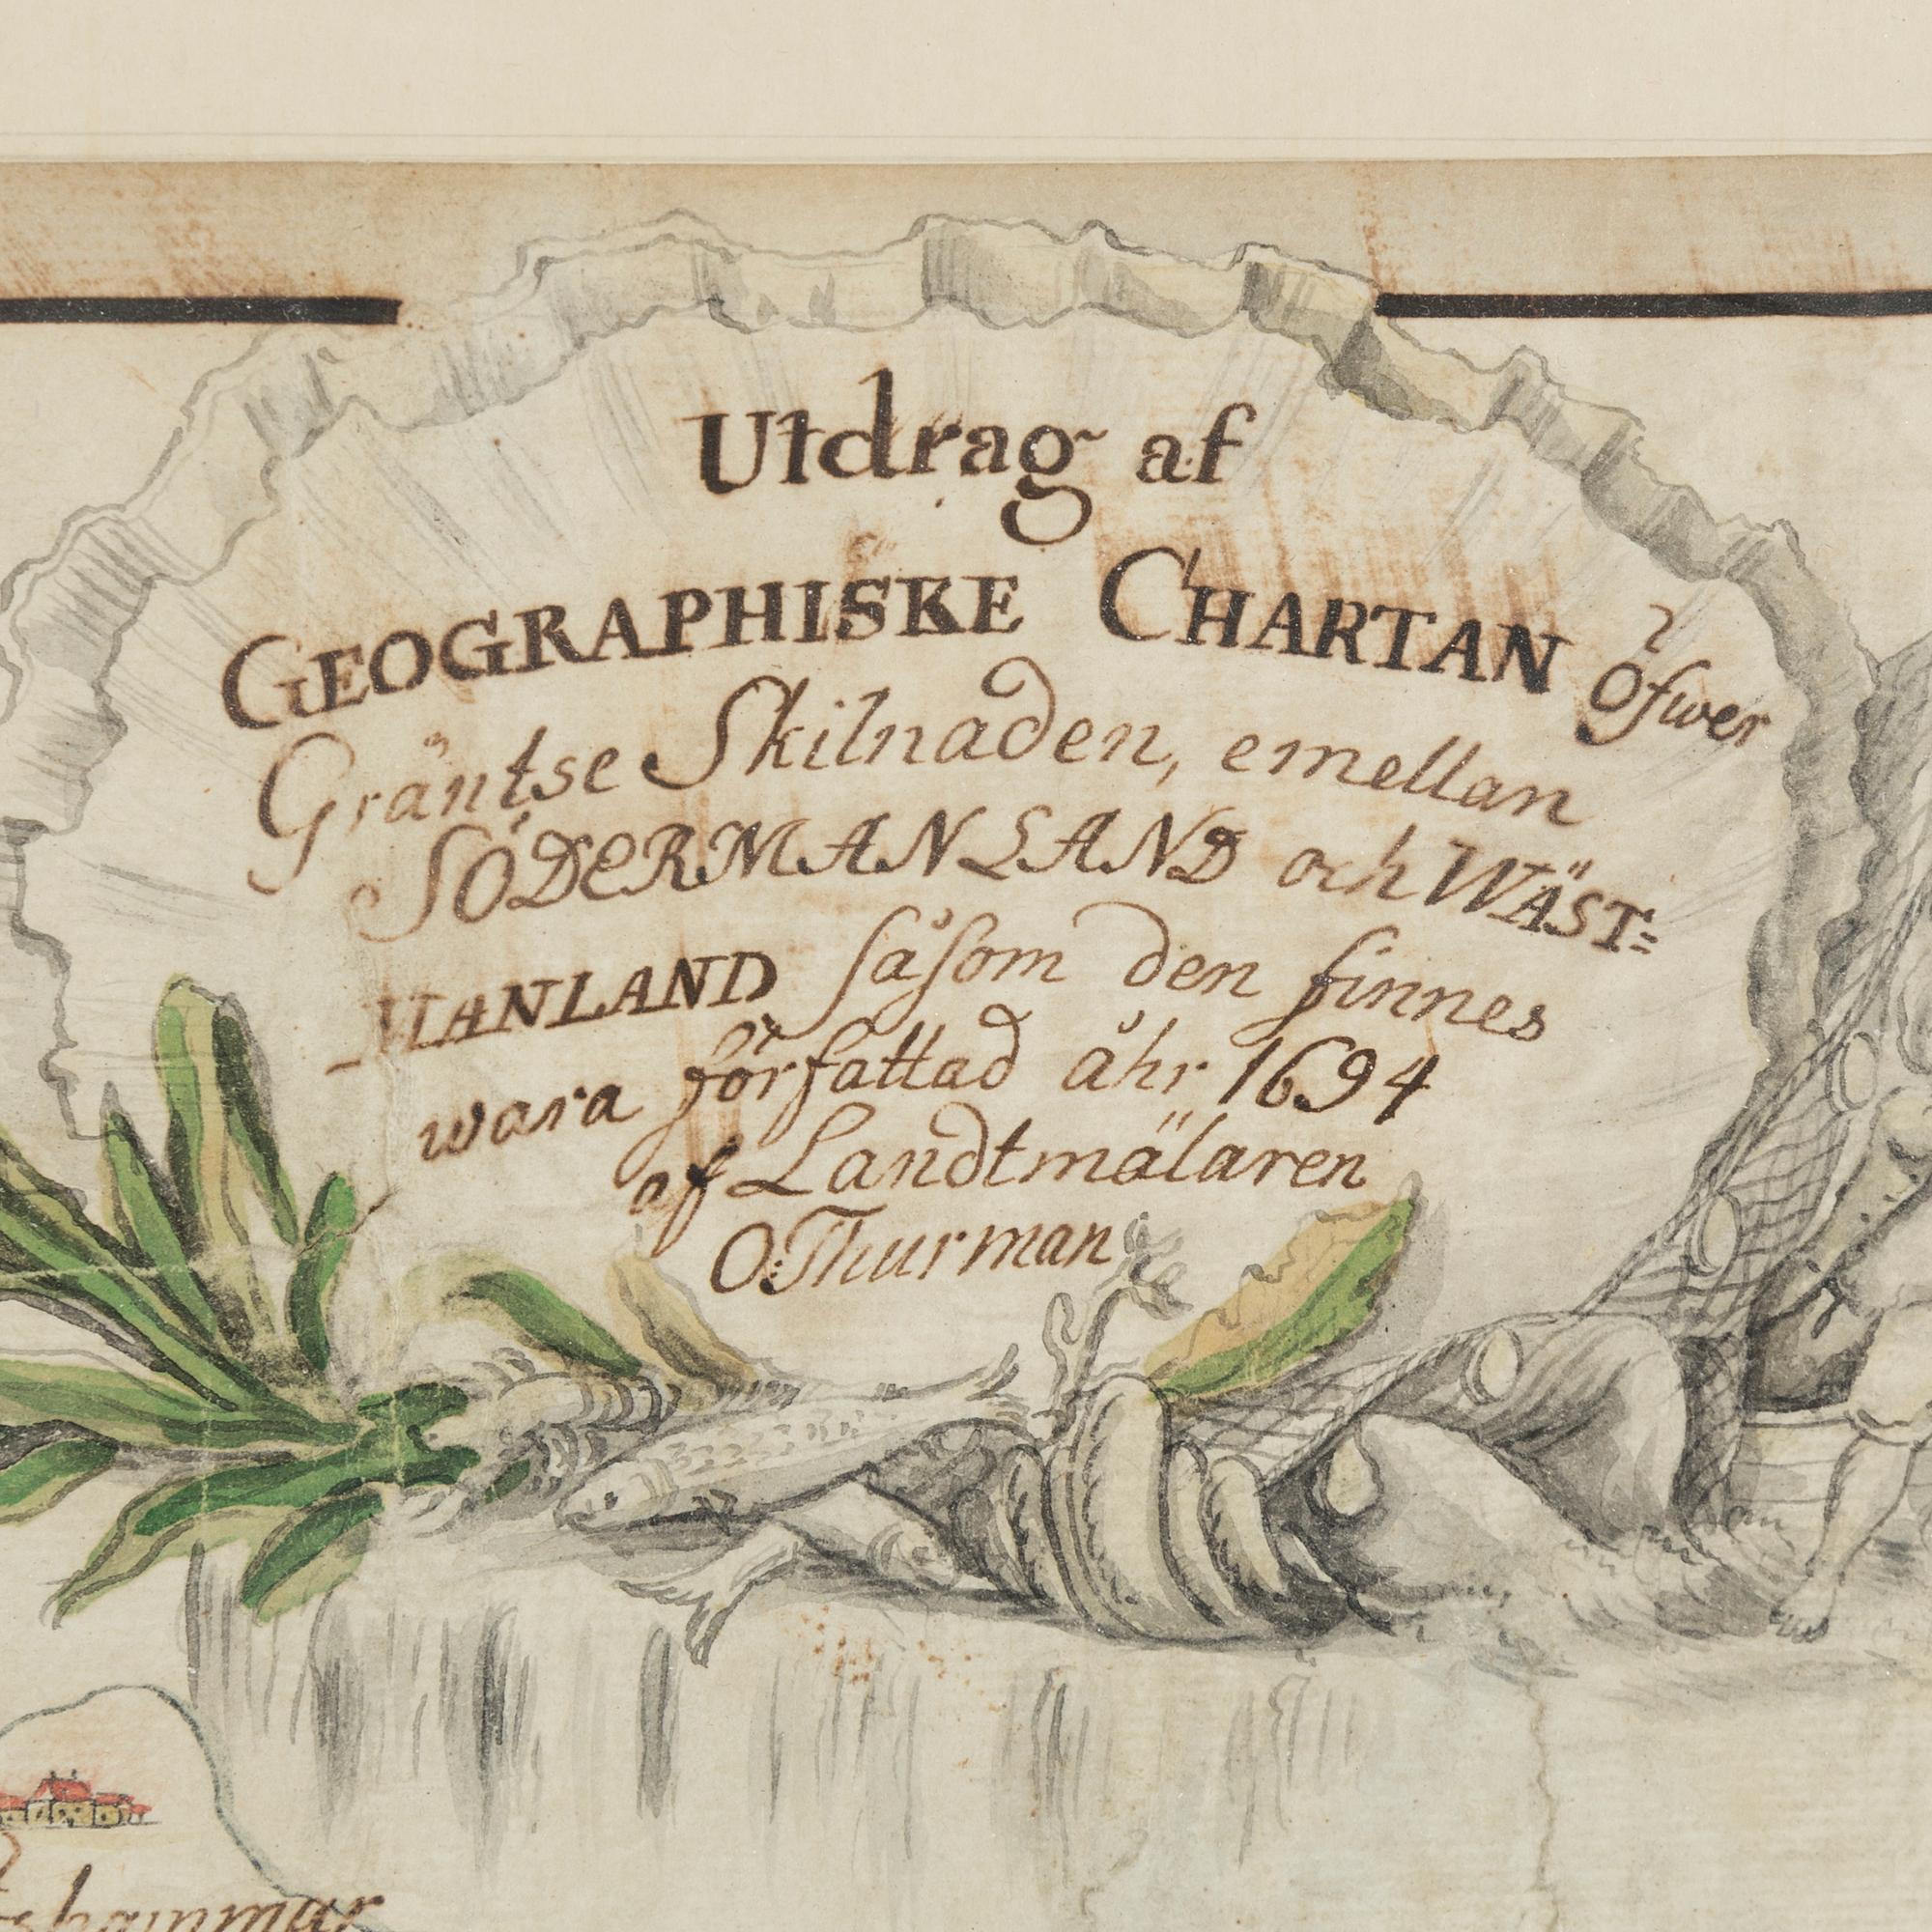 Utdrag af
GEOGRAPHISKE CHARTAN öfwer
Gräntse Skilnaden, emellan
SÖDERMANLAND och WÄST=
-MANLAND såsom den finnes
wara författad åhr 1694
af Landtmälaren
O: Thurman